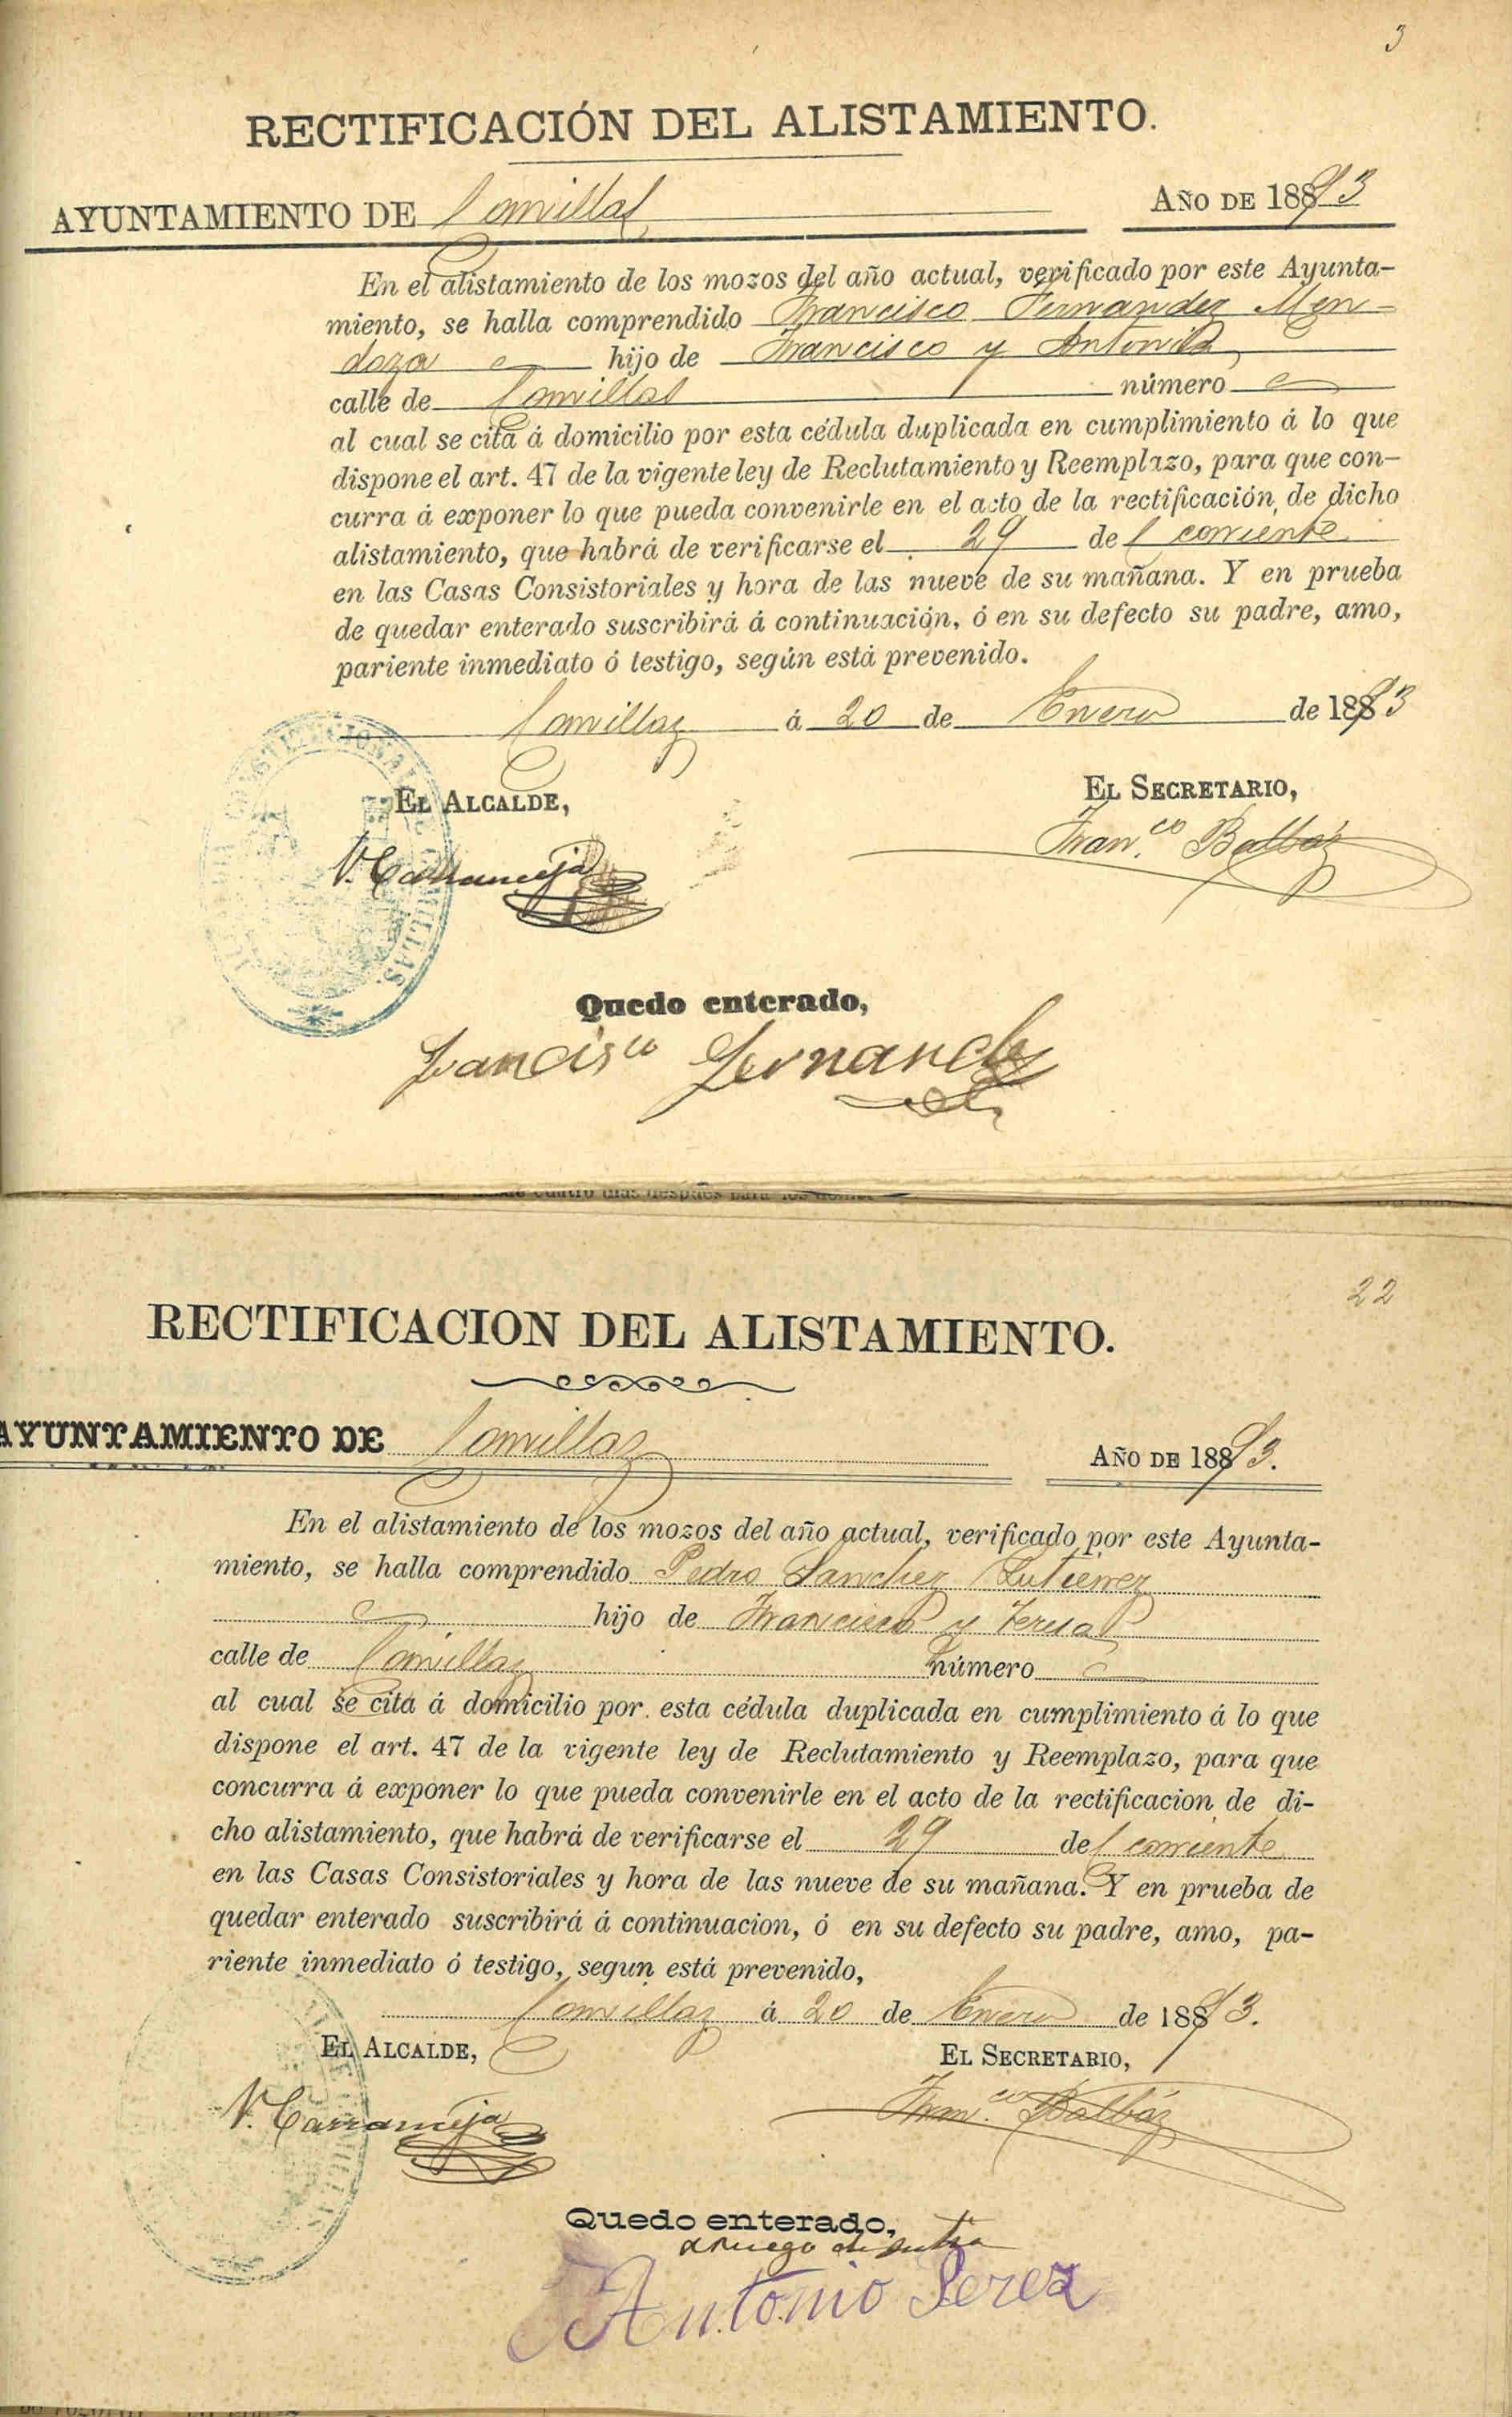 3
RECTIFICACIÓN DEL ALISTAMIENTO.
AYUNTAMIENTO DE Comillas AÑO DE 1893
En el alistamiento de los mozos del año actual, verificado por este Ayunta-
miento, se halla comprendido Francisco Fernandez Men-
doza hijo de Francisco y Antonia
calle de Comillas número
al cual se cita á domicilio por esta cédula duplicada en cumplimiento á lo que
dispone el art. 47 de la vigente ley de Reclutamiento y Reemplazo, para que con-
curra á exponer lo que pueda convenirle en el acto de la rectificación de dicho
alistamiento, que habrá de verificarse el 29 del corriente
en las Casas Consistoriales y hora de las nueve de su mañana. Y en prueba
de quedar enterado suscribirá á continuación, ó en su defecto su padre, amo,
pariente inmediato ó testigo, según está prevenido.
Comillas á 20 de Enero de 1893
EL ALCALDE, EL SECRETARIO,
V. Carranceja Fran.co Balbáz
Quedo enterado,
Francisco Fernandez
cuatro dias despues para los
22
RECTIFICACION DEL ALISTAMIENTO.
AYUNTAMIENTO DE Comillas AÑO DE 1893.
En el alistamiento de los mozos del año actual, verificado por este Ayunta-
miento, se halla comprendido Pedro Sanchez Gutierrez
hijo de Francisco y Teresa
calle de Comillas número
al cual se cita á domicilio por esta cédula duplicada en cumplimiento á lo que
dispone el art. 47 de la vigente ley de Reclutamiento y Reemplazo, para que
concurra á exponer lo que pueda convenirle en el acto de la rectificacion de di-
cho alistamiento, que habrá de verificarse el 29 del corriente
en las Casas Consistoriales y hora de las nueve de su mañana. Y en prueba de
quedar enterado suscribirá á continuacion, ó en su defecto su padre, amo, pa-
riente inmediato ó testigo, segun está prevenido,
Comillas á 20 de Enero de 1893.
EL ALCALDE, EL SECRETARIO,
V. Carranceja Fran.co Balbáz
Quedo enterado,
a ruego de su tia
Antonio Perez